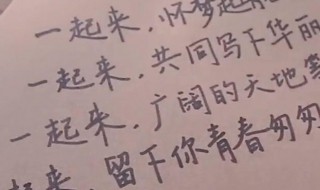 一起来，怀梦起
一起来，共同写下华丽
一起来，广阔的天地等
起来，留下你青春匆匆